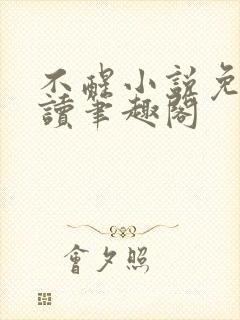 不醒小說免
讀筆趣閣
會夕照